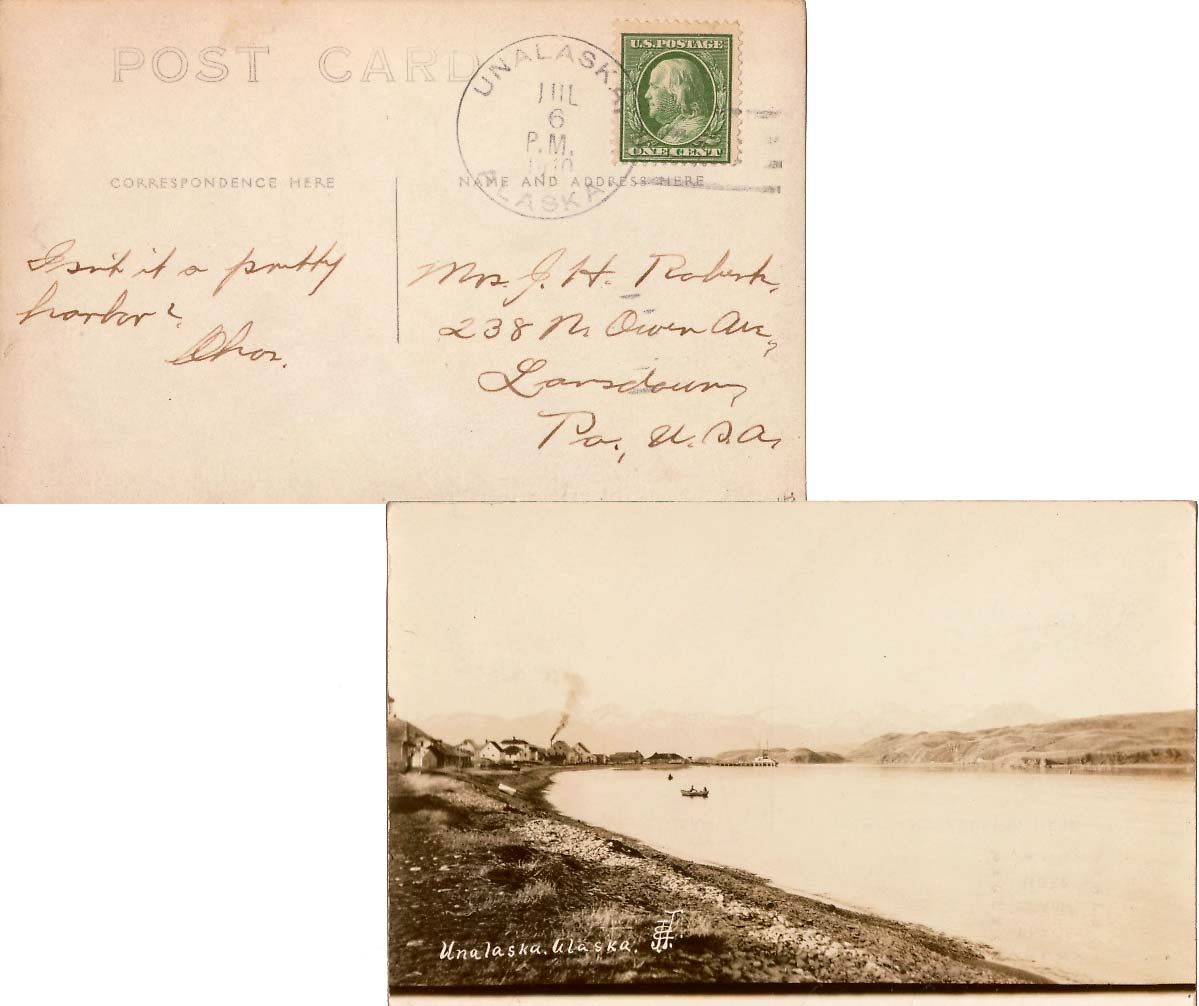 POST CARD
UNALASKA
JUL
6
P.M.
1910
ALASKA
U.S. POSTAGE
ONE CENT
CORRESPONDENCE HERE
NAME AND ADDRESS HERE
Isn't it a pretty
harbor?
Chas.
Mrs. J. H. Robert,
238 N. Owen Ave,
Lansdown,
Pa., U.S.A.
Unalaska. Alaska.